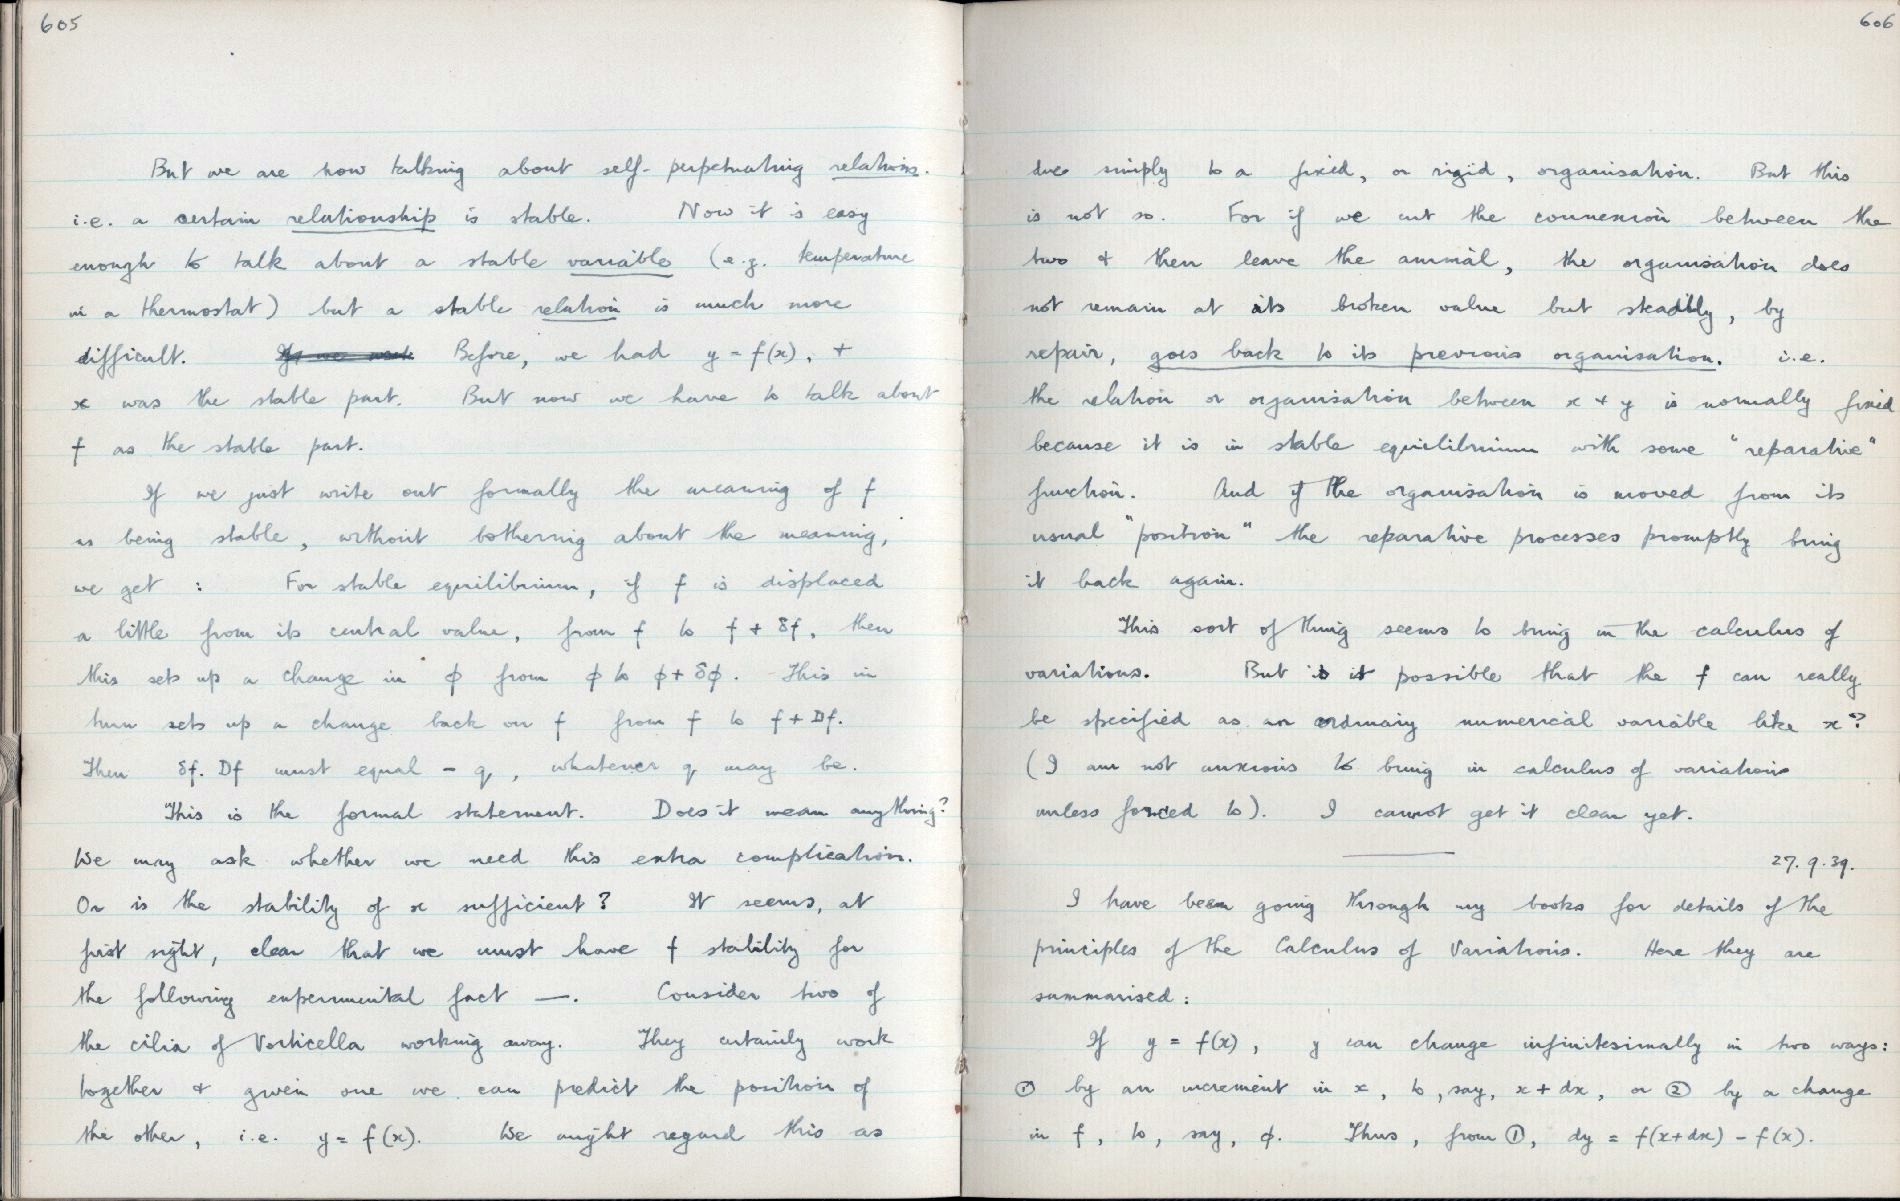 605
But we are now talking about self-perpetuating relations.
i.e. a certain relationship is stable. Now it is easy
enough to talk about a stable variable (e.g. temperature
in a thermostat) but a stable relation is much more
difficult. If we want Before, we had y = f(x), +
x was the stable part. But now we have to talk about
f as the stable part.
If we just write out formally the meaning of f
as being stable, without bothering about the meaning,
we get : For stable equilibrium, if f is displaced
a little from its central value, from f to f + δf, then
this sets up a change in ϕ from ϕ to ϕ + δϕ. This in
turn sets up a change back on f from f to f + Df.
Then δf. Df must equal - q, whatever q may be.
This is the formal statement. Does it mean anything?
We may ask whether we need this extra complication.
Or is the stability of x sufficient? It seems, at
first sight, clear that we must have f stability for
the following experimental fact —. Consider two of
the cilia of Vorticella working away. They certainly work
together + given one we can predict the position of
the other, i.e. y = f(x). We might regard this as
606
due simply to a fixed, or rigid, organisation. But this
is not so. For if we cut the connexion between the
two + then leave the animal, the organisation does
not remain at its broken value but steadily, by
repair, goes back to its previous organisation. i.e.
the relation or organisation between x + y is normally fixed
because it is in stable equilibrium with some "reparative"
function. And if the organisation is moved from its
usual "position" the reparative processes promptly bring
it back again.
This sort of thing seems to bring in the calculus of
variations. But is it possible that the f can really
be specified as an ordinary numerical variable like x?
(I am not anxious to bring in calculus of variations
unless forced to). I cannot get it clear yet.
27.9.39.
I have been going through my books for details of the
principles of the Calculus of Variations. Here they are
summarised:
If y = f(x), y can change infinitesimally in two ways:
① by an increment in x, to, say, x + dx, or ② by a change
in f, to, say, ϕ. Thus, from ①, dy = f(x+dx) - f(x).